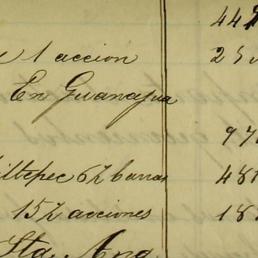 44
1 accion 25
En Guanajua
97
iltepec 6½ barras 48
15½ acciones 18
Sta. Ang